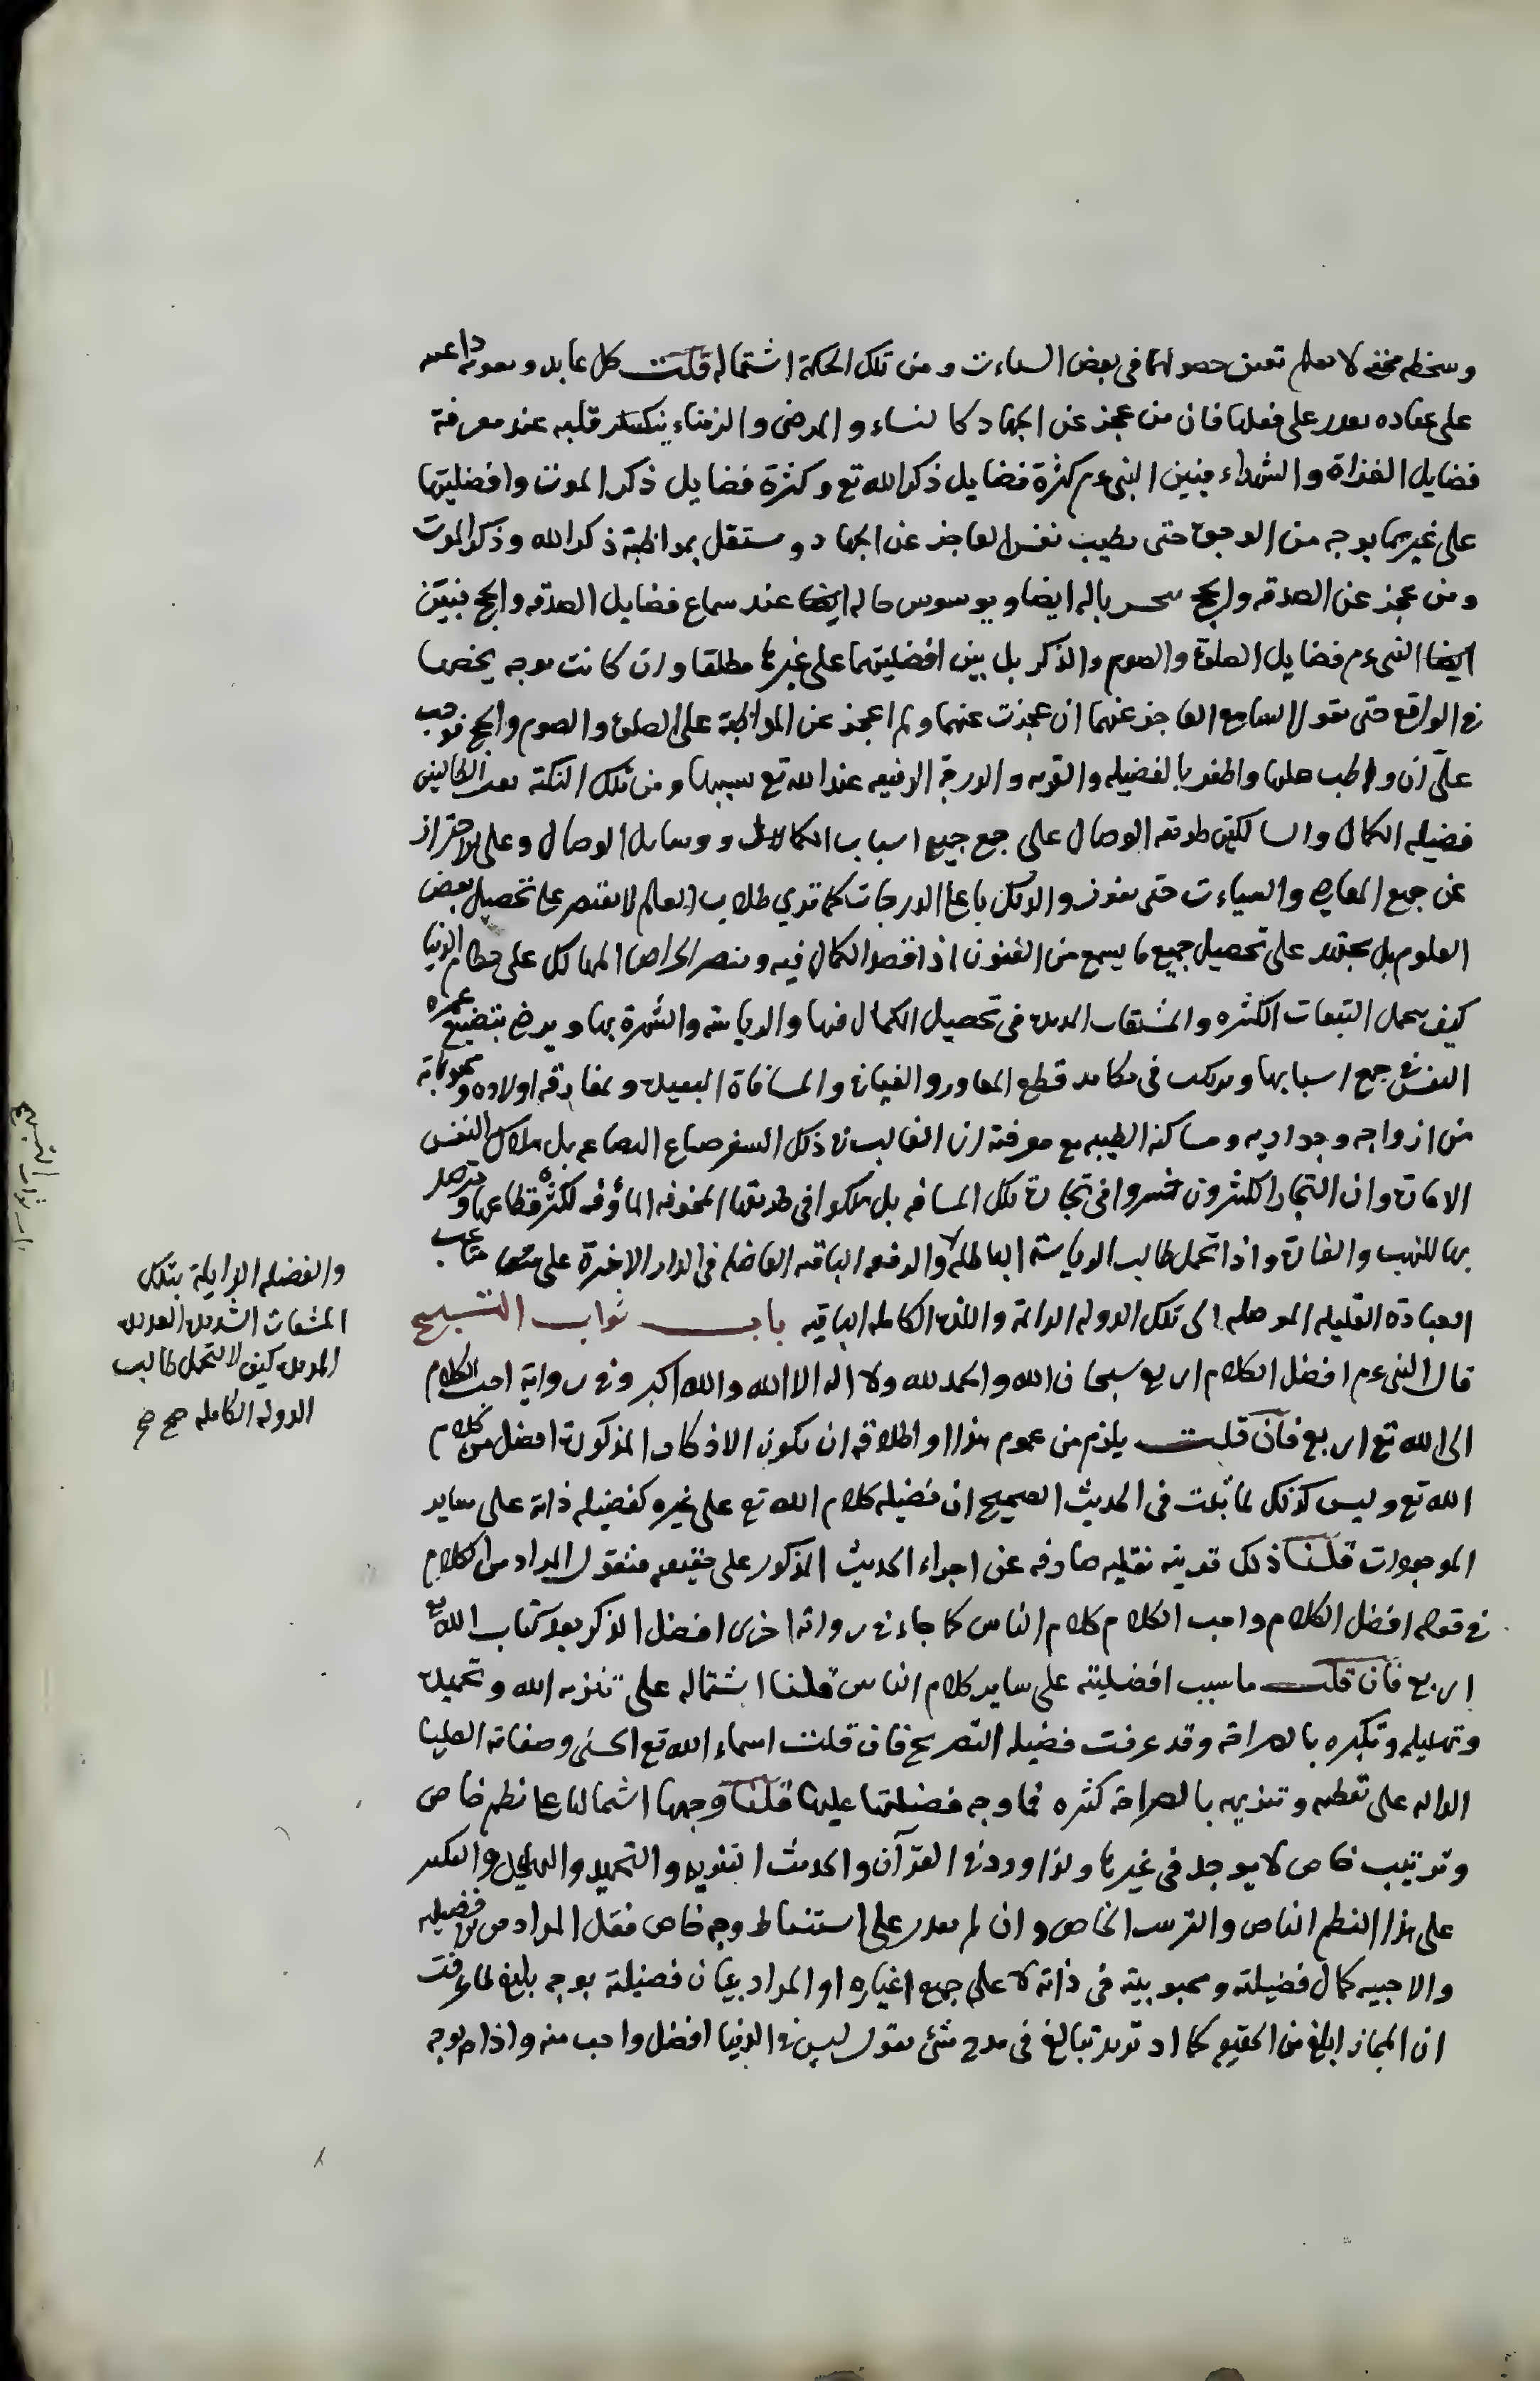 وسخطه مخفى لا يعلم تعين حصولهما فى بعض الساعات ومن تلك الحكمة اشتماله قلت كل عابد
على عباده يقدر على فعلها فان من عجز عن الجهاد كالنساء والمرضى والزمناء ينكسر قلبه عند معرفة
فضايل الغزاة والشهداء فبين النبى عم كثرة فضايل ذكر الله تع وكثرة فضايل ذكر الموت وافضليتهما
على غيرهما بوجه من الوجوه حتى يطيب نفس العاجز عن الجهاد ويستقل بمواظبة ذكر الله وذكر الموت
ومن عجز عن الصدقه والحج باله ايضا ويوسوس حاله ايضا عند سماع فضايل الصدقه والحج فبين
ايضا النبى عم فضايل الصلوة والصوم والذكر بل بين افضليتهما على غيرها مطلقا وان كانت بوجه يخصها
فى الواقع حتى يقول السامع العاجز عنهما ان عجزت عنهما ولم اعجز عن المواظبة على الصلوة والصوم والحج
علىّ ان واظب عليها واظفر بالفضيله والقربه والدرجة الرفيعه عند الله تع بسببها ومن تلك النكتة الطالبين
فضيله الكمال والسالكين طريقه الوصال على جمع جميع اسباب الكمالات ووسايل الوصال وعلى الاحتراز
عن جميع المعاصى والسياءت حتى يفوزوا لكن باعلى الدرجات كما ترى طلاب العالم لا يقتصر على تحصيل بعض
العلوم بل يجتهد على تحصيل جميع ما يسمع من الفنون اذا قصد الكمال فيه المهالك على حطام الدنيا
كيف يحمل التبعات الكثره والمشقات المديدة فى تحصيل الكمال فيها والرياسة والشهرة بها ويرضى بتضييع عمره
النفس فى جمع اسبابها قطع المفاوز والفيافى والمسافاة البعيدة ومفارقه اولاده ومحبوباته
من ازواجه وجواريه ومساكنه الطيبه مع معرفة ان الغالب فى ذلك السفر ضياع البضاعه بل هلاك النفس
وان التجار الكثيرون خسروا فى تجارة تلك المسافه بل هلكوا فى طريقها المخوفه المأوفه لكثرة قطاعها
بها للنهب والغارة واذا تحمل طالب الرياسة الباطله والرفعه الباقيه الفاضله فى الدار الاخرة على متاعب
العبادة القليله الموصله الى تلك الدوله الدائمة واللذة الكامله الباقيه باب ثواب التسبيح
قال النبى عم افضل الكلام اربع سبحان الله والحمد لله ولا اله الا الله والله اكبر وفى رواية احب الكلام
الى الله تع اربع فان قلت يلزم من عموم هذا او اطلاقه ان يكون الاذكار المذكورة افضل من كلام
الله تع وليس كذلك لما ثبت فى الحديث الصحيح ان فضيله كلام الله تع على غيره كفضيله ذاته على ساير
الموجودات قلنا ذلك قرينه نقليه صارفه عن اجراء الحديث المذكور على حقيقته فنقول المراد من الكلام
فى قوله افضل الكلام واحب الكلام كلام الناس كما جاء فى رواية اخرى افضل الذكر بعد كتاب الله تع
اربع فان قلت ما سبب افضليته على ساير كلام الناس قلنا اشتماله على تنزيه الله وتحميده
وتهليله وتكبيره بالصراحة وقد عرفت فضيله التصريح فان قلت اسماء الله تع الحسنى وصفاته العليا
الداله على تعظيمه وتنزيهه بالصراحة كثيره فما وجه فضيلتها عليها قلنا وجهها اشتمالها على نظم خاص
وترتيب خاص لا يوجد فى غيرها ولذا ورد فى القرآن والحديث التنزيه والتحميد والتهليل والتكبير
على هذا النظم الخاص والترتيب الخاص وان لم يقدر على استنباط وجه خاص فقل المراد من فضيله
والاحبيه كمال فضيلته ومحبوبيته فى ذاته لا على جميع اغياره او المراد بيان فضيلته بوجه بليغ لما عرفت
ان المجاز ابلغ من الحقيقه كما اذ تريد تبالغ فى مدح شئ تقول ليس فى الدنيا افضل واحب منه واذا لم يوجه
والفضله الزايلة بتلك
المشقات الشديدة العديدة
المديدة كيف لا يتحمل طالب
الدوله الكامله صح صح
باب ثواب التسبيح